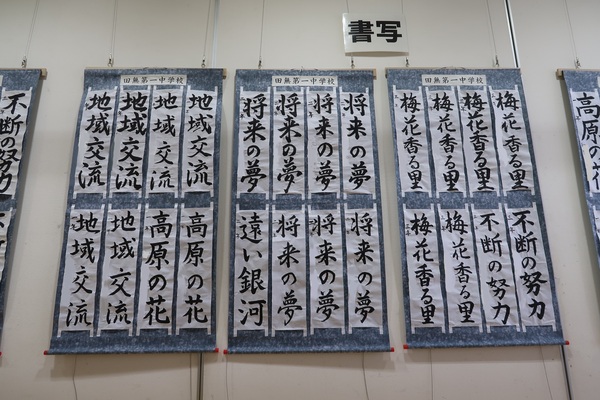 書写
不断の努力
田無第一中学校
地域交流
地域交流
地域交流
地域交流
高原の花
高原の花
地域交流
地域交流
田無第一中学校
将来の夢
将来の夢
将来の夢
将来の夢
将来の夢
将来の夢
将来の夢
遠い銀河
田無第一中学校
梅花香る里
梅花香る里
梅花香る里
梅花香る里
不断の努力
不断の努力
梅花香る里
梅花香る里
高原の花